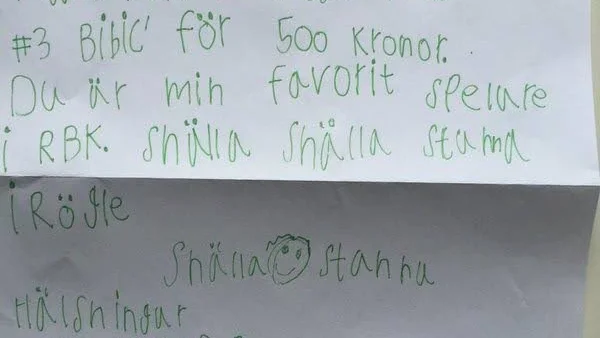 #3 BiBiC' för 500 kronor.
Du är min favorit spelare
i RBK. Snälla Snålla stanna
i Rögle
Snälla stanna
Hälsningar